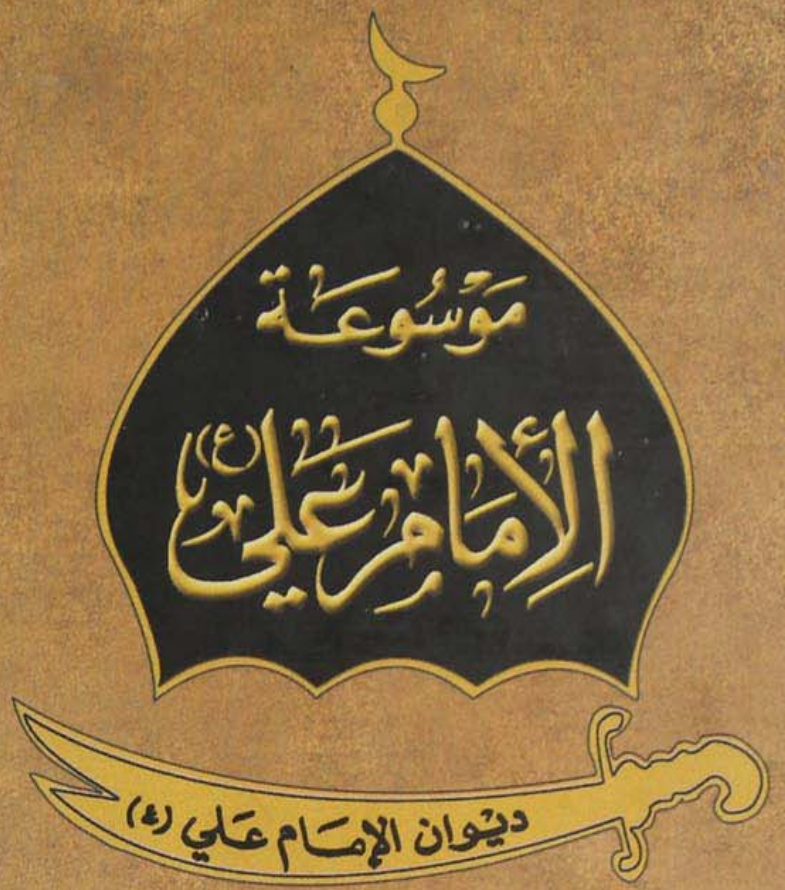 مَوْسُوعَة
الإِمَام عَلي (ع)
ديوان الإمام علي (ع)